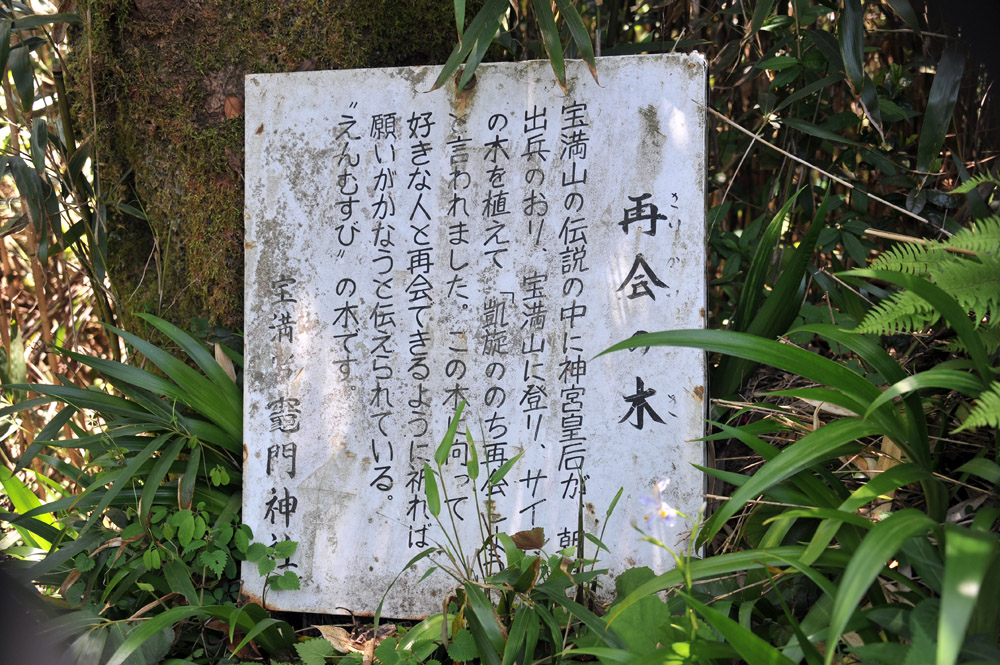 再会の木
さいか
き
宝満山の伝説の中に神宮皇后が 朝
出兵のおり、宝満山に登り、サイ
の木を植えて「凱旋ののち再会
と言われました。この木に向って
好きな人と再会できるように祈れば
願いがかなうと伝えられている。
〝えんむすび〟の木です。
宝満宮 竈門神社